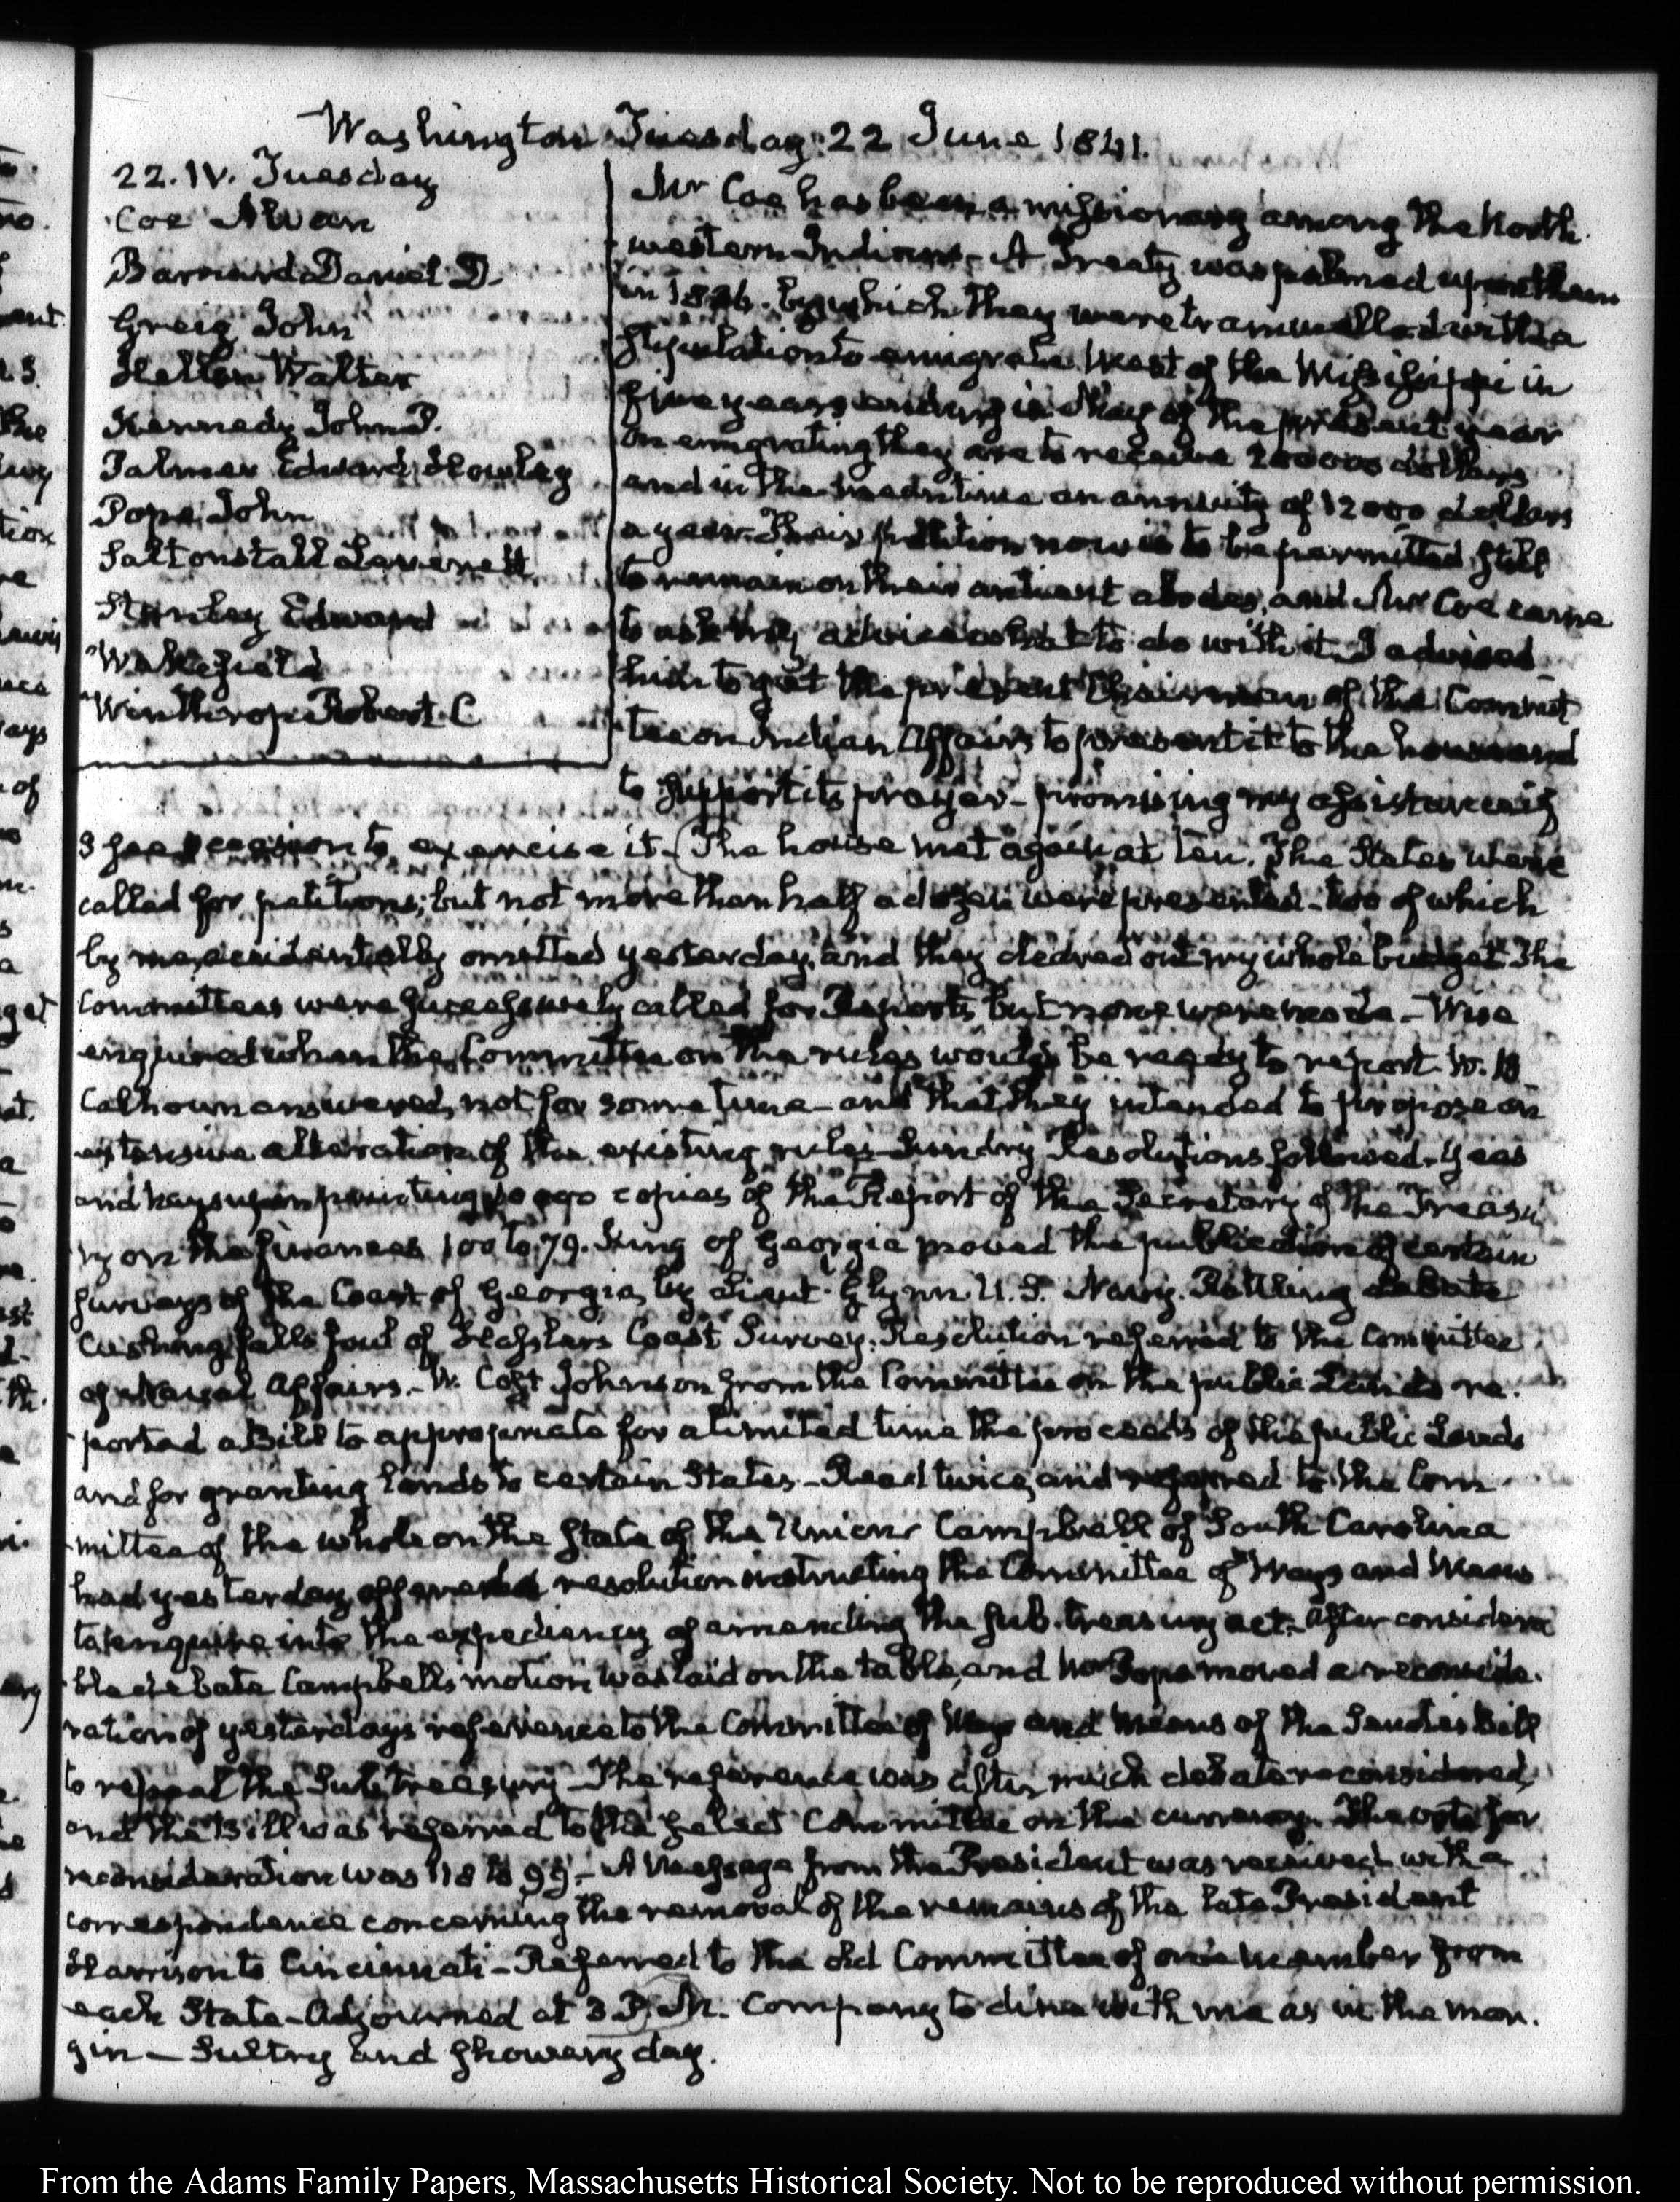 Washington Tuesday 22 June 1841.
22. IV. Tuesday
Coe Alvan
Barnard Daniel D.
Greig John
Hellen Walter
Kennedy John P.
Palmer Edward Howley
Pope John
Saltonstall Leverett
Stanley Edward
Wakefield
Winthrop Robert C
Mr Coe has been a missionary among the North
western Indians. A Treaty was palmed upon them
in 1836. by which they were trammelled with a
stipulation to emigrate West of the Mississippi in
five years ending in May of the present year
On emigrating they are to receive 200000 dollars
and in the mean time an annuity of 12000 dollars
a year. Their petition now is to be permitted still
to remain on their antient abodes, and Mr Coe came
to ask my advice what to do with it. I advised
him to get the present Chairman of the Commit
tee on Indian Affairs to present it to the house and
to support its prayer — promising my assistance if
I see occasion to exercise it. The house met again at ten. The States where
called for petitions; but not more than half a dozen were presented — two of which
by me, accidentally omitted yesterday, and they cleared out my whole budget. The
Committees were successively called for Reports, but none were made — Wise
enquired when the Committee on the rules would be ready to report. W. B.
Calhoun answered, not for some time — and that they intended to propose an
extensive alteration of the existing rules — Sundry Resolutions followed. Yeas
and nays upon printing 10000 copies of the Report of the Secretary of the Treasu
ry on the finances 100 to 79. King of Georgia moved the publication of certain
surveys of the Coast of Georgia, by Lieut. Glynn U. S. Navy. Rattling debate
Cushing falls foul of Hasslers Coast Survey. Resolution referred to the Committee
of Naval Affairs. — W. Cost Johnson from the Committee on the public Lands re.
ported a Bill to appropriate for a limited time the proceeds of the public Lands
and for granting lands to certain States — Read twice, and referred to the Com
mittee of the whole on the State of the Union. Campbell of South Carolina
had yesterday offered a resolution instructing the Committee of Ways and Means
to enquire into the expediency of amending the sub. treasury act. After considera
ble debate Campbell's motion was laid on the table, and Pope moved a reconside.
ration of yesterdays reference to the Committee of Ways and Means of the Senates Bill
to repeal the Subtreasury — The reference was after much debate reconsidered,
and the Bill was referred to the select Committee on the currency. The vote for
reconsideration was 118 to 99. — A Message from the President was received with a
correspondence concerning the removal of the remains of the late President
Harrison to Cincinnati — Referred to the old Committee of one member from
each State — Adjourned at 3 P.M. Company to dine with me as in the mar.
gin — Sultry and showery day.
From the Adams Family Papers, Massachusetts Historical Society. Not to be reproduced without permission.